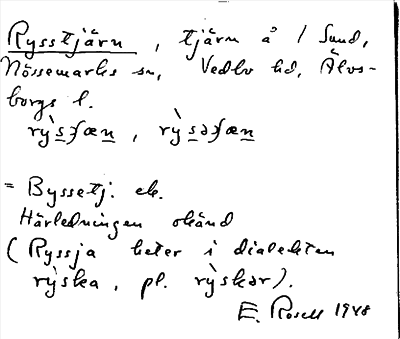 Rysstjärn, tjärn å / Sund,
Nössemarks sn, Vedbo hd, Älvs-
borgs l.
rỳsʃæn, rỳsəʃæn
= Byssetj. ek.
Härledningen okänd
(Ryssja heter i dialekten
rỳska, pl. rỳskər).
E. Rosell 1948